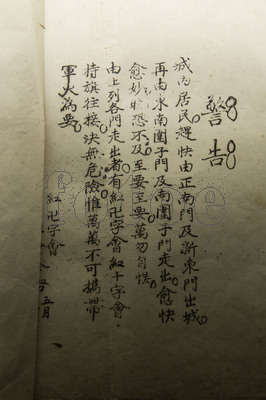 警告
城內居民趕快由正南門及新東門出城
再由水南圍子門及南圍子門走出愈快
愈妙遲恐不及至要至要萬勿自悮
由上列各門走出者有紅卍字會紅十字會
持旗往接決無危險惟萬萬不可攜帶
軍火為要
紅卍字會
五月